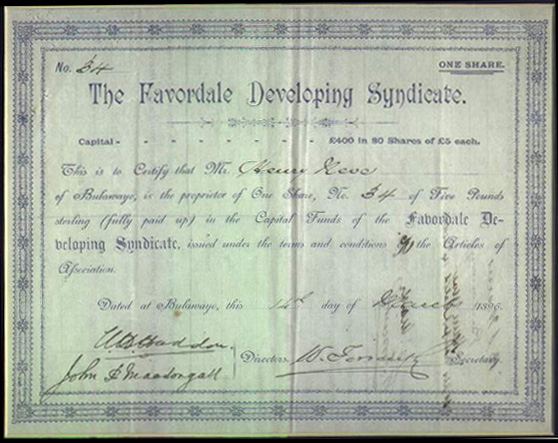 No. 34
ONE SHARE.
The Favordale Developing Syndicate.
Capital - - - - - - - £400 in 80 Shares of £5 each.
This is to Certify that Mr. Henry
of Bulawayo, is the proprietor of One Share, No. 34 of Five Pounds
sterling (fully paid up) in the Capital Funds of the Favordale De-
veloping Syndicate, issued under the terms and conditions of the Articles of
Association.
Dated at Bulawayo, this 14th day of March 1896.
Directors.
Secretary.
John